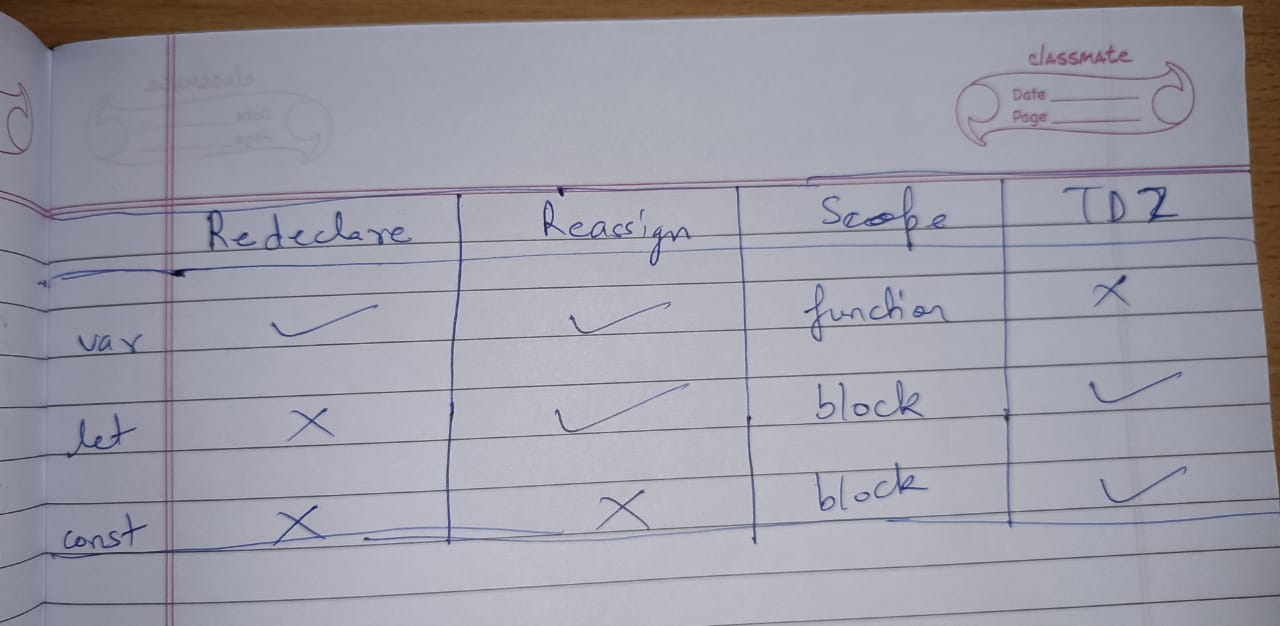 classmate
Date
Page
Redeclare Reassign Scope TDZ
var ✓ ✓ function ✗
let ✗ ✓ block ✓
const ✗ ✗ block ✓